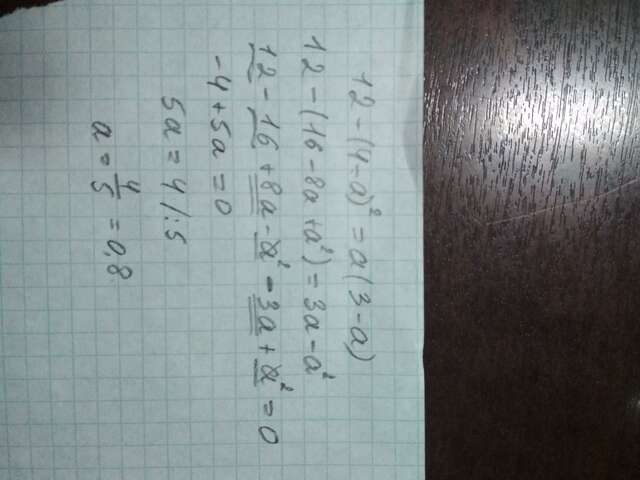 12-(4-a)² = a(3-a)
12-(16-8a+a²) = 3a-a²
12-16+8a-a²-3a+a²=0
-4+5a=0
5a=4 /:5
a=4/5=0,8